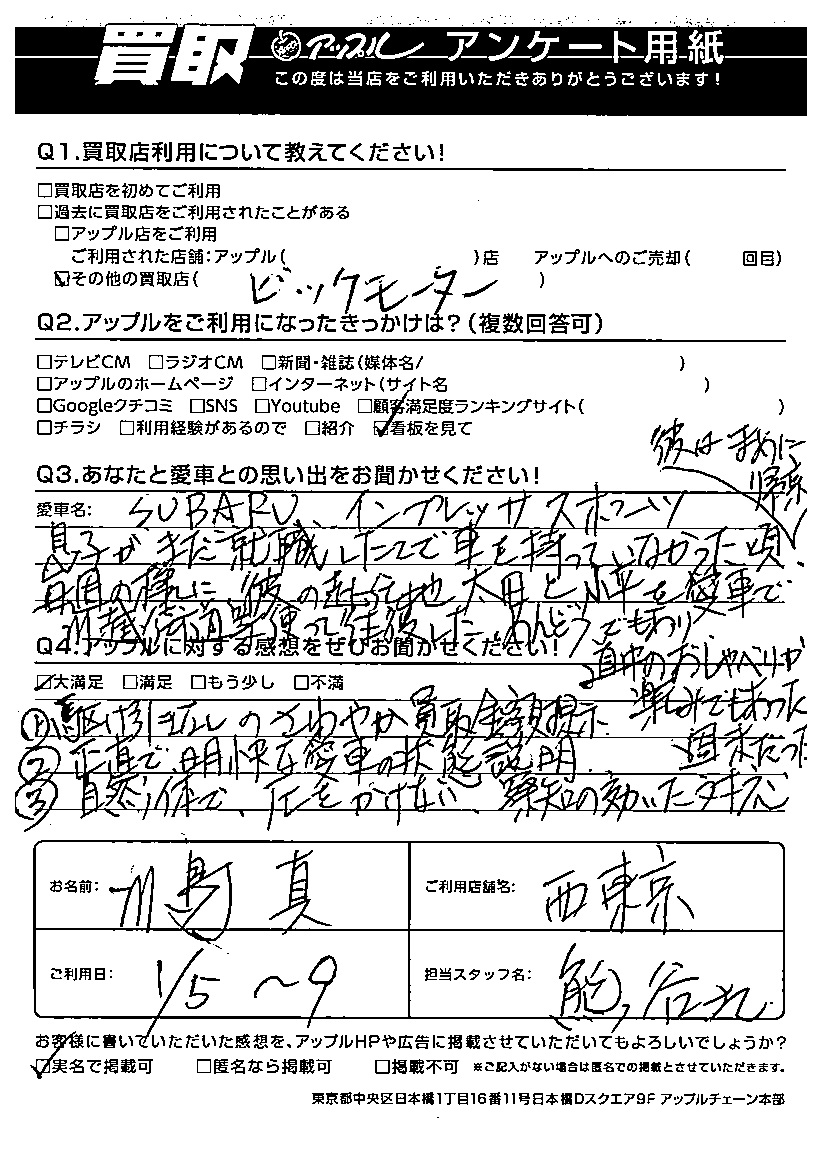 買取 アップル アンケート用紙
この度は当店をご利用いただきありがとうございます!
Q1.買取店利用について教えてください!
□買取店を初めてご利用
□過去に買取店をご利用されたことがある
□アップル店をご利用
ご利用された店舗:アップル( )店 アップルへのご売却( 回目)
☑その他の買取店( ビックモーター )
Q2.アップルをご利用になったきっかけは?(複数回答可)
□テレビCM □ラジオCM □新聞・雑誌(媒体名/ )
□アップルのホームページ □インターネット(サイト名 )
□Googleクチコミ □SNS □Youtube □顧客満足度ランキングサイト( )
□チラシ □利用経験があるので □紹介 ☑看板を見て
彼はまめに
帰京
Q3.あなたと愛車との思い出をお聞かせください!
愛車名: SUBARU インプレッサ スポーツ
息子がまだ就職したてで車を持っていなかった頃、
毎週の様に、彼の赴任地 太田と小平を愛車で
使って往復した。めんどうでもあり
道中のおしゃべりが
楽しみでもあった
週末だった
Q4.アップルに対する感想をぜひお聞かせください!
☑大満足 □満足 □もう少し □不満
① 駆け引きなしのさわやか買取金額提示
② 正直で、明快な愛車の状態説明
③ 自然体で、圧をかけない、察知の効いた
お名前: 川島 真
ご利用店舗名: 西東京
ご利用日: 1/5 〜9
担当スタッフ名: 熊谷
お客様に書いていただいた感想を、アップルHPや広告に掲載させていただいてもよろしいでしょうか?
☑実名で掲載可 □匿名なら掲載可 □掲載不可 ※ご記入がない場合は匿名での掲載とさせていただきます。
東京都中央区日本橋1丁目16番11号日本橋Dスクエア9F アップルチェーン本部